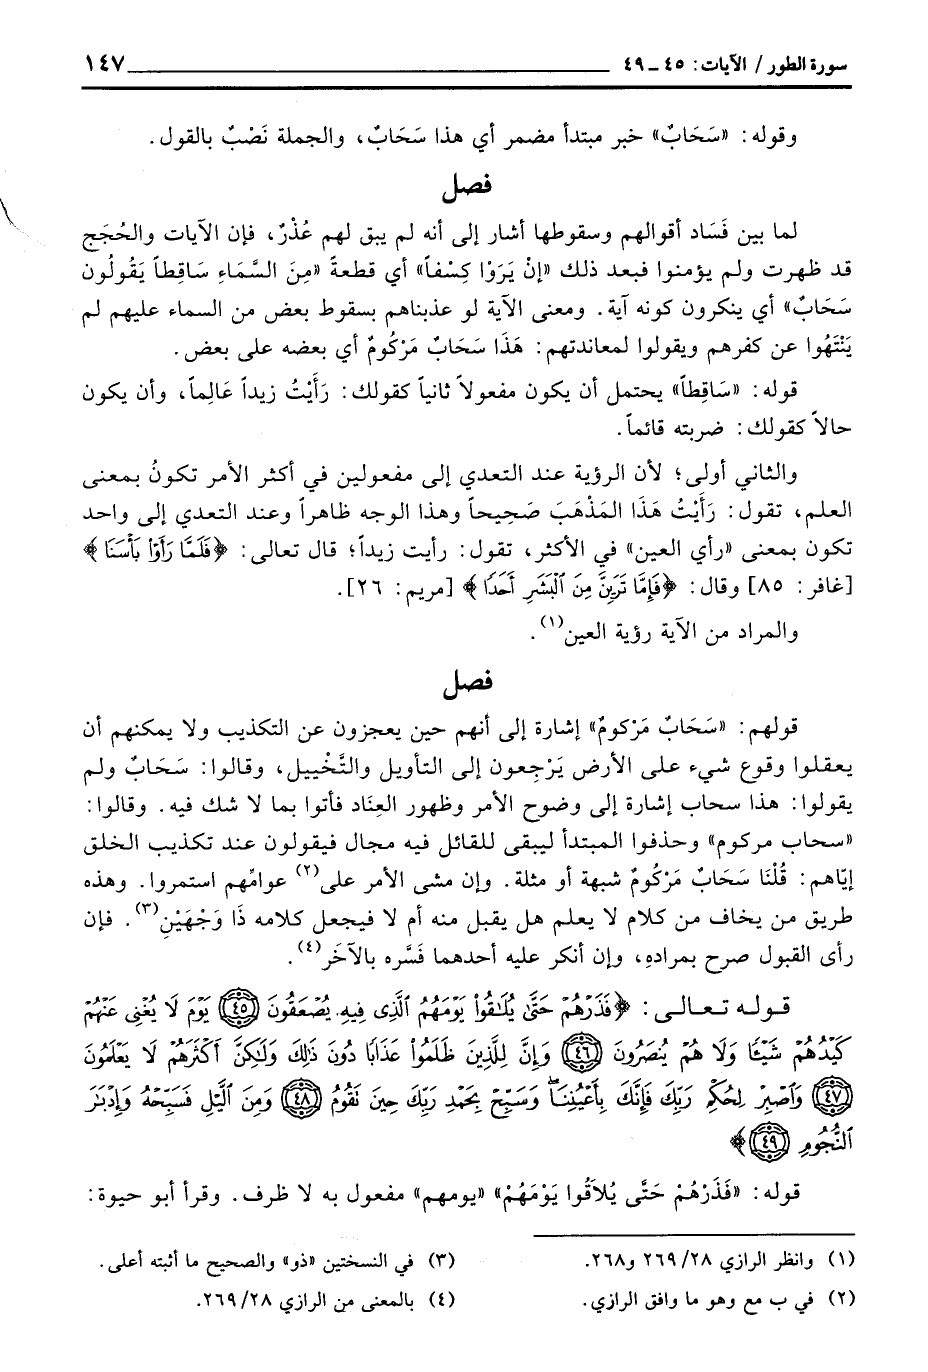 سورة الطور / الآيات: ٤٥ – ٤٩ ١٤٧
وقوله: «سَحَابٌ» خبر مبتدأ مضمر أي هذا سَحَابٌ، والجملة نَصْبٌ بالقول.
فصل
لما بين فَسَاد أقوالهم وسقوطها أشار إلى أنه لم يبق لهم عُذْرٌ، فإن الآيات والحُجَج
قد ظهرت ولم يؤمنوا فبعد ذلك «إنْ يَرَوْا كِسْفاً» أي قطعةً «مِنَ السَّمَاءِ سَاقِطاً يَقُولُون
سَحَابٌ» أي ينكرون كونه آية. ومعنى الآية لو عذبناهم بسقوط بعض من السماء عليهم لم
يَنْتَهُوا عن كفرهم ويقولوا لمعاندتهم: هَذَا سَحَابٌ مَرْكُومٌ أي بعضه على بعض.
قوله: «سَاقِطاً» يحتمل أن يكون مفعولاً ثانياً كقولك: رَأَيْتُ زيداً عَالِماً، وأن يكون
حالاً كقولك: ضربته قائماً.
والثاني أولى؛ لأن الرؤية عند التعدي إلى مفعولين في أكثر الأمر تكونُ بمعنى
العلم، تقول: رَأَيْتُ هَذَا المَذْهَبَ صَحِيحاً وهذا الوجه ظاهراً وعند التعدي إلى واحد
تكون بمعنى «رأي العين» في الأكثر، تقول: رأيت زيداً؛ قال تعالى: ﴿فَلَمَّا رَأَوْا بَأْسَنَا﴾
[غافر: ٨٥] وقال: ﴿فَإِمَّا تَرَيِنَّ مِنَ ٱلْبَشَرِ أَحَدًا﴾ [مريم: ٢٦].
والمراد من الآية رؤية العين(١).
فصل
قولهم: «سَحَابٌ مَرْكومٌ» إشارة إلى أنهم حين يعجزون عن التكذيب ولا يمكنهم أن
يعقلوا وقوع شيء على الأرض يَرْجِعون إلى التأويل والتَّخْييل، وقالوا: سَحَابٌ ولم
يقولوا: هذا سحاب إشارة إلى وضوح الأمر وظهور العِنَاد فأتوا بما لا شك فيه. وقالوا:
«سحاب مركوم» وحذفوا المبتدأ ليبقى للقائل فيه مجال فيقولون عند تكذيب الخلق
إيّاهم: قُلْنَا سَحَابٌ مَرْكُومٌ شبهة أو مثلة. وإن مشى الأمر على(٢) عوامِّهم استمروا. وهذه
طريق من يخاف من كلام لا يعلم هل يقبل منه أم لا فيجعل كلامه ذَا وَجْهَيْنِ(٣). فإن
رأى القبول صرح بمرادهِ، وإن أنكر عليه أحدهما فَسَّره بالآخَر(٤).
قوله تعالى: ﴿فَذَرْهُمْ حَتَّىٰ يُلَـٰقُواْ يَوْمَهُمُ ٱلَّذِى فِيهِ يُصْعَقُونَ ٤٥ يَوْمَ لَا يُغْنِى عَنْهُمْ
كَيْدُهُمْ شَيْـًٔا وَلَا هُمْ يُنصَرُونَ ٤٦ وَإِنَّ لِلَّذِينَ ظَلَمُواْ عَذَابًا دُونَ ذَٰلِكَ وَلَـٰكِنَّ أَكْثَرَهُمْ لَا يَعْلَمُونَ
٤٧ وَٱصْبِرْ لِحُكْمِ رَبِّكَ فَإِنَّكَ بِأَعْيُنِنَا وَسَبِّحْ بِحَمْدِ رَبِّكَ حِينَ تَقُومُ ٤٨ وَمِنَ ٱلَّيْلِ فَسَبِّحْهُ وَإِدْبَـٰرَ
ٱلنُّجُومِ ٤٩﴾
قوله: «فَذَرْهُمْ حَتَّى يُلاَقُوا يَوْمَهُمْ» «يومهم» مفعول به لا ظرف. وقرأ أبو حيوة:
(١) وانظر الرازي ٢٨/ ٢٦٩ و٢٦٨.
(٢) في ب مع وهو ما وافق الرازي.
(٣) في النسختين «ذو» والصحيح ما أثبته أعلى.
(٤) بالمعنى من الرازي ٢٨/ ٢٦٩.